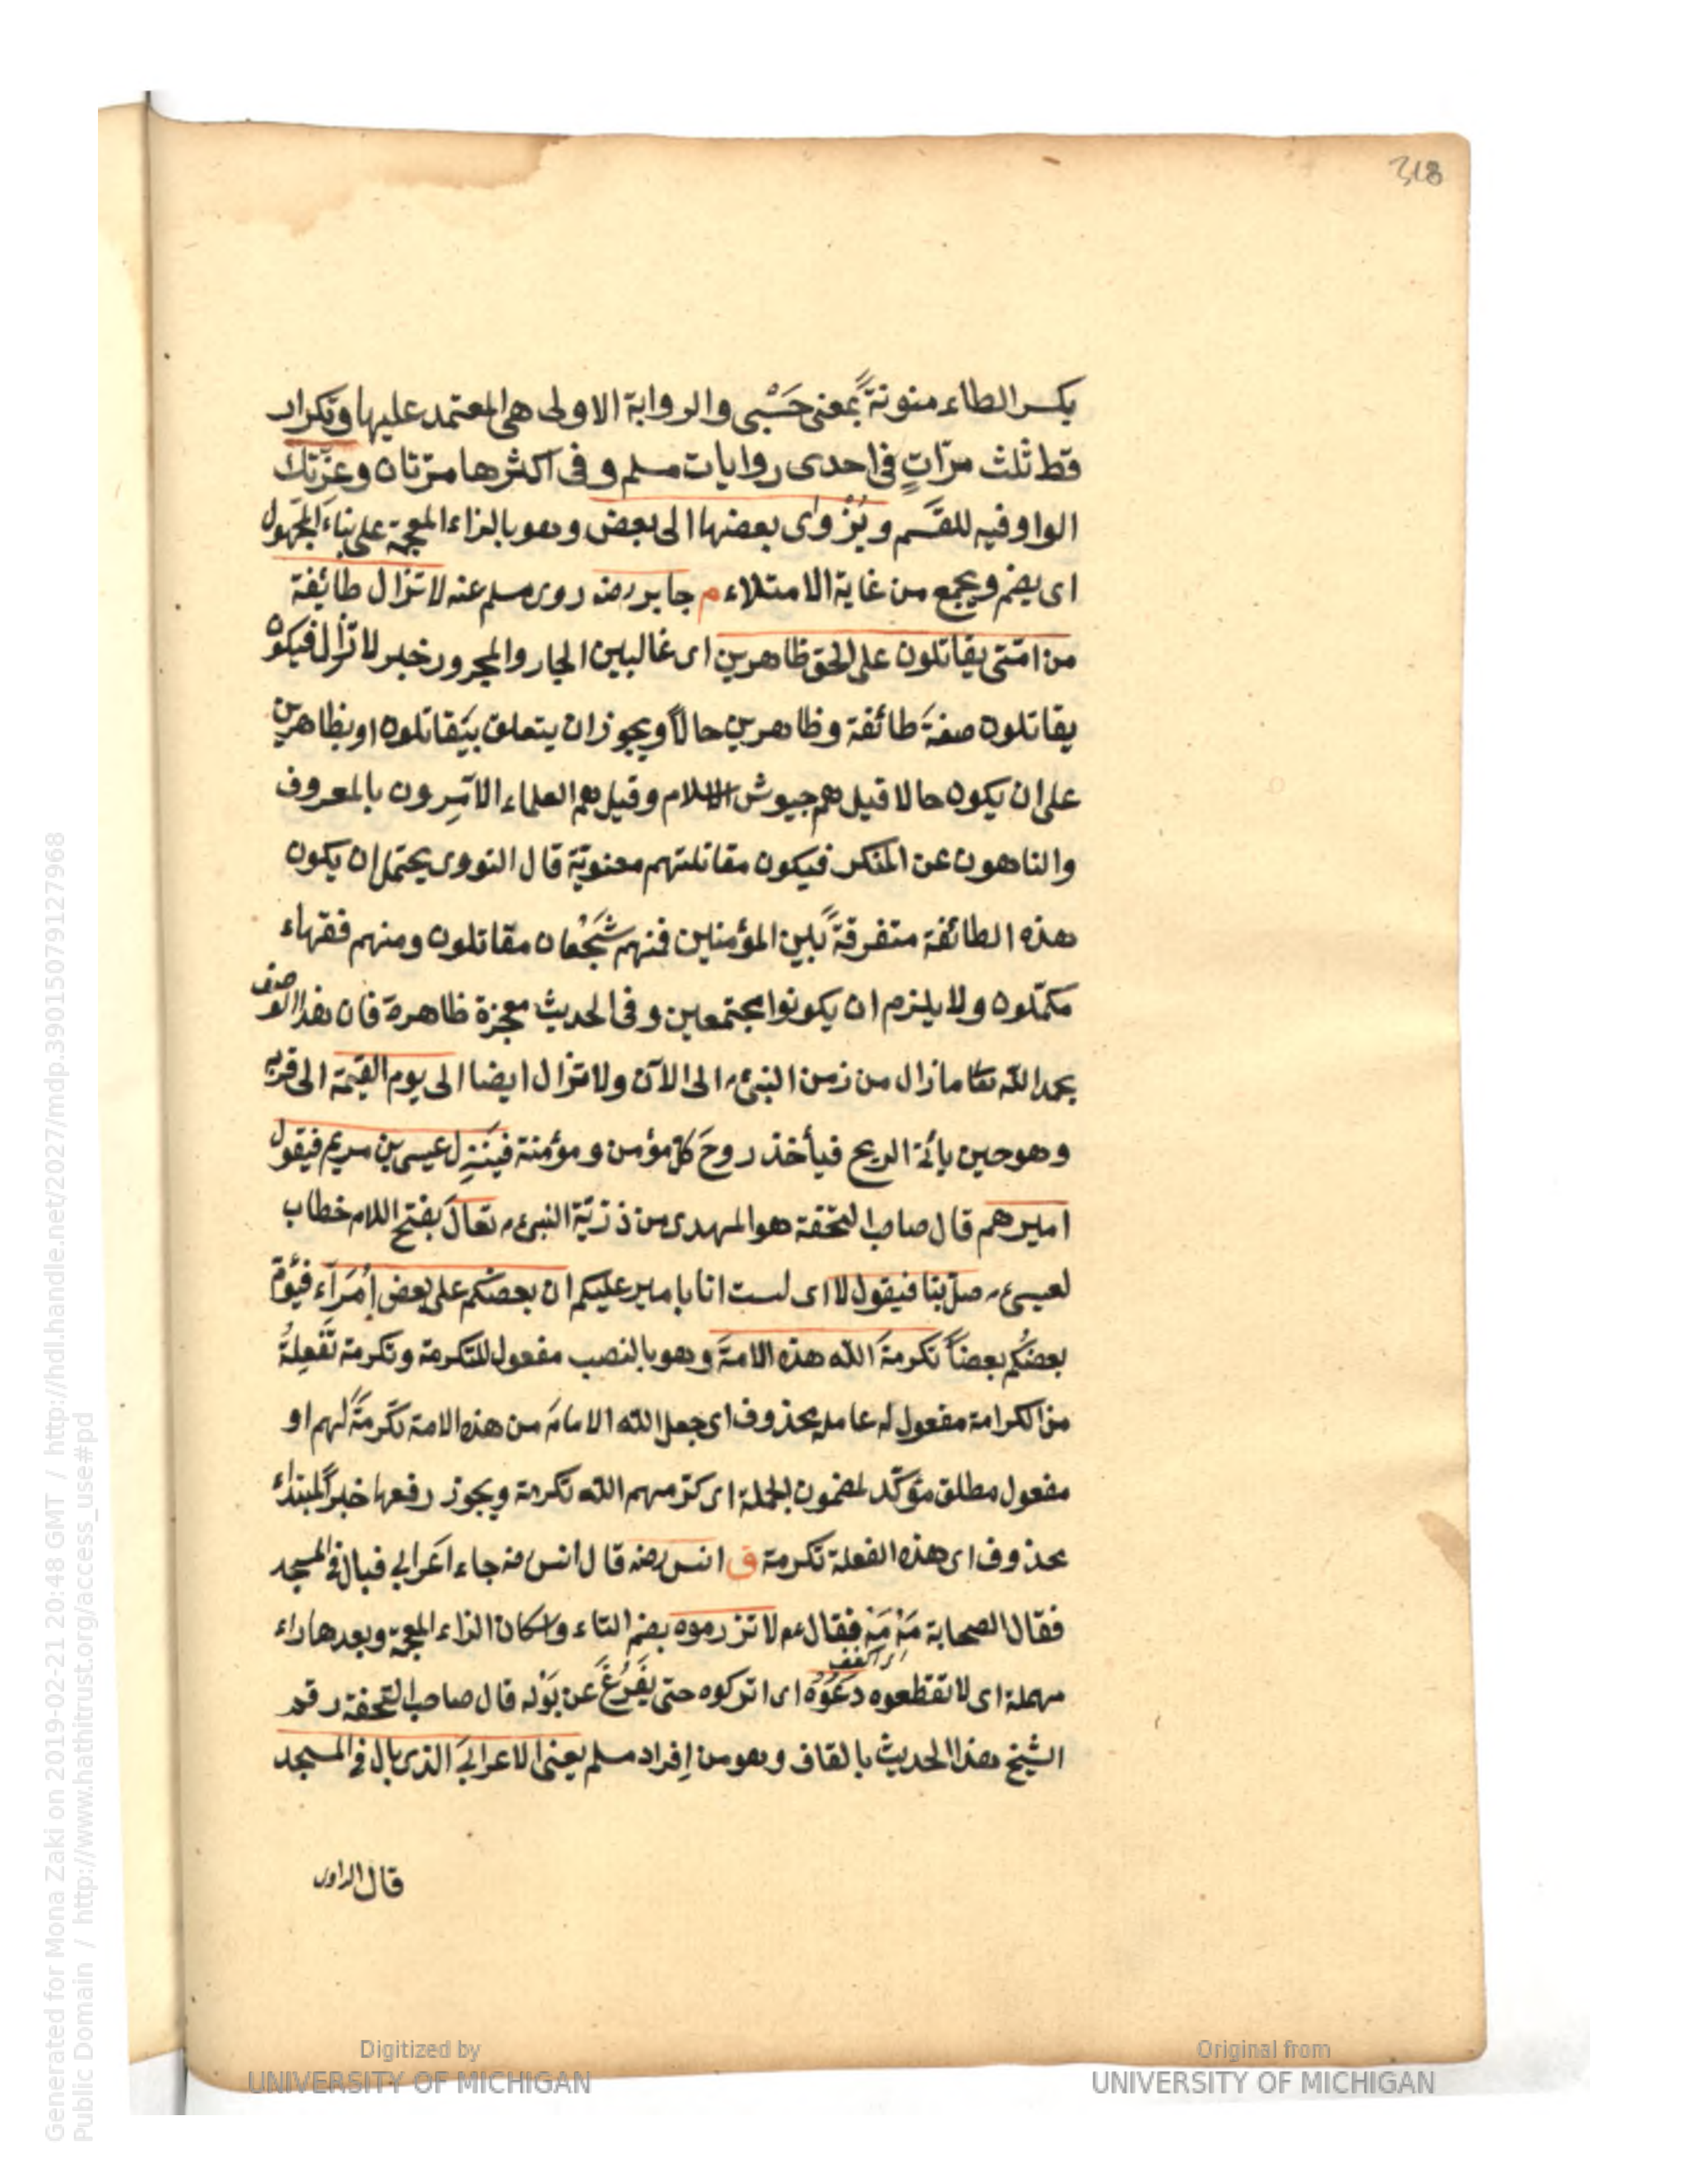 318
بكسر الطاء منونةً بمعنى حَسْبى والرواية الاولى هى المعتمد عليها وتكرار
قط ثلث مرّاتٍ فى احدى روايات مسلم و فى اكثرها مرّتان وعزّتك
الواو فيه للقَسَم ويُزْوٰى بعضها الى بعض وهو بالزاء المعجمة على بناء المجهول
اى يضم ويجمع من غاية الامتلاء م جابر رضه روى مسلم عنه لا تزال طائفة
من امّتى يقاتلون على الحق ظاهرين اى غالبين الجار والمجرور خبر لا تزال فيكون
يقاتلون صفةَ طائفة وظاهرين حالاً ويجوز ان يتعلق بيَقاتلون او بظاهرين
على ان يكون حالا قيل هم جيوش الاسلام وقيل هم العلماء الآمِرون بالمعروف
والناهون عن المنكر فيكون مقاتلتهم معنويّة قال النووى يحتمل ان يكون
هذه الطائفة متفرقةً بين المؤمنين فمنهم شَجْعان مقاتلون ومنهم فقهاء
مكمّلون ولا يلزم ان يكونوا مجتمعين وفى الحديث معجزة ظاهرة فان هذا الوصف
بحمد الله تعا مازال من زمن النبىء م الى الآن ولا تزال ايضا الى يوم القيمة الى قربه
وهو حين يأتى الريح فيأخذ روحَ كل مؤمن ومؤمنة فينَزِل عيسى بن مريم فيقول
اميرهم قال صاحب التحفة هو المهدى من ذرّيّة النبىء م تعالَ بفتح اللام خطاب
لعيسىء م صلّ بنا فيقول لا اى لست انا بامير عليكم ان بعضكم على بعض اُمَرَآء فيؤمّ
بعضُكم بعضاً تكرمةَ الله هذه الامةَ وهو بالنصب مفعول للتكرمة وتكرمة تَفعِلةٌ
من الكرامة مفعول له عامله محذوف اى جعل الله الامامة من هذه الامة تكرمةً لهم او
مفعول مطلق مؤكّد لمضمون الجملة اى كرّمهم الله تكرمة ويجوز رفعها خبراً لمبتداء
محذوف اى هذه الفعلة تكرمة ق انس رضه قال انس رضه جاء اَعرابى فبال فى المسجد
فقال الصحابة مَهْ مَهْ فقال عم لا تزرموه بضم التاء واسكان الزاء المعجمة وبعدها راء
اى اكفف
مهملة اى لا تقطعوه دَعُوْهُ اى اتركوه حتى يَفْرُغَ عن بَوْله قال صاحب التحفة رقم
الشيخ هذا الحديث بالقاف وهو من اِفراد مسلم يعنى الاعرابىَ الذى بال فى المسجد
قال الراوى
Digitized by
UNIVERSITY OF MICHIGAN
Original from
UNIVERSITY OF MICHIGAN
Generated for Mona Zaki on 2019-02-21 20:48 GMT / http://hdl.handle.net/2027/mdp.39015079127968
Public Domain / http://www.hathitrust.org/access_use#pd